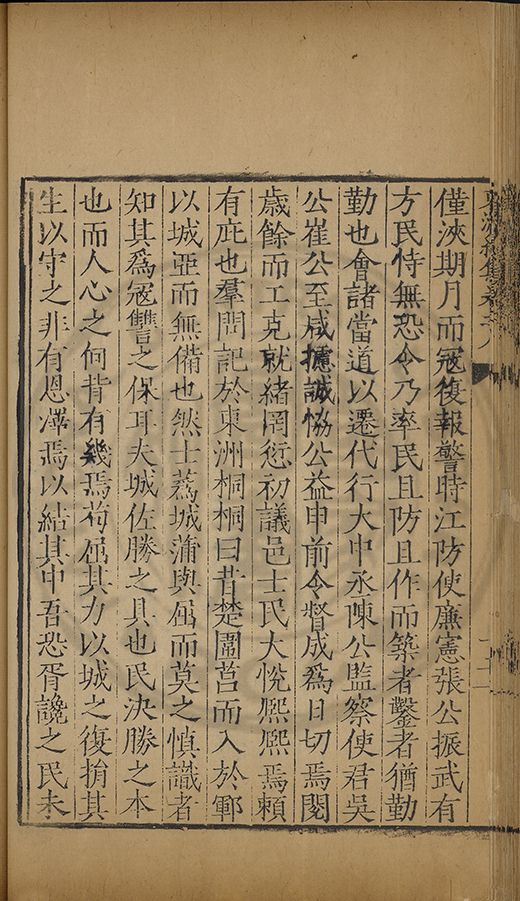 僅浹期月而寇復報警時江防使廉憲張公振武有
方民恃無恐令乃率民且防且作而築者鑿者猶勤
勤也會諸當道以遷代行大中丞陳公監察使君吳
公崔公至咸攄誠恊公益申前令督成爲日切焉閱
歲餘而工克就緒罔愆初議邑士民大悅熈熈焉頼
有庇也羣問記於東洲桐桐曰昔楚圍莒而入於鄆
以城亟而無備也然士蒍城蒲與屈而莫之慎識者
知其爲寇讐之保耳夫城佐勝之具也民決勝之本
也而人心之向背有幾焉苟屈其力以城之復掯其
生以守之非有恩澤焉以結其中吾恐胥讒之民未